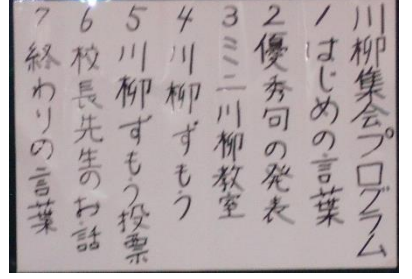 川柳集会プログラム
1 はじめの言葉
2 優秀句の発表
3 ミニ川柳教室
4 川柳ずもう
5 川柳ずもう投票
6 校長先生のお話
7 終わりの言葉